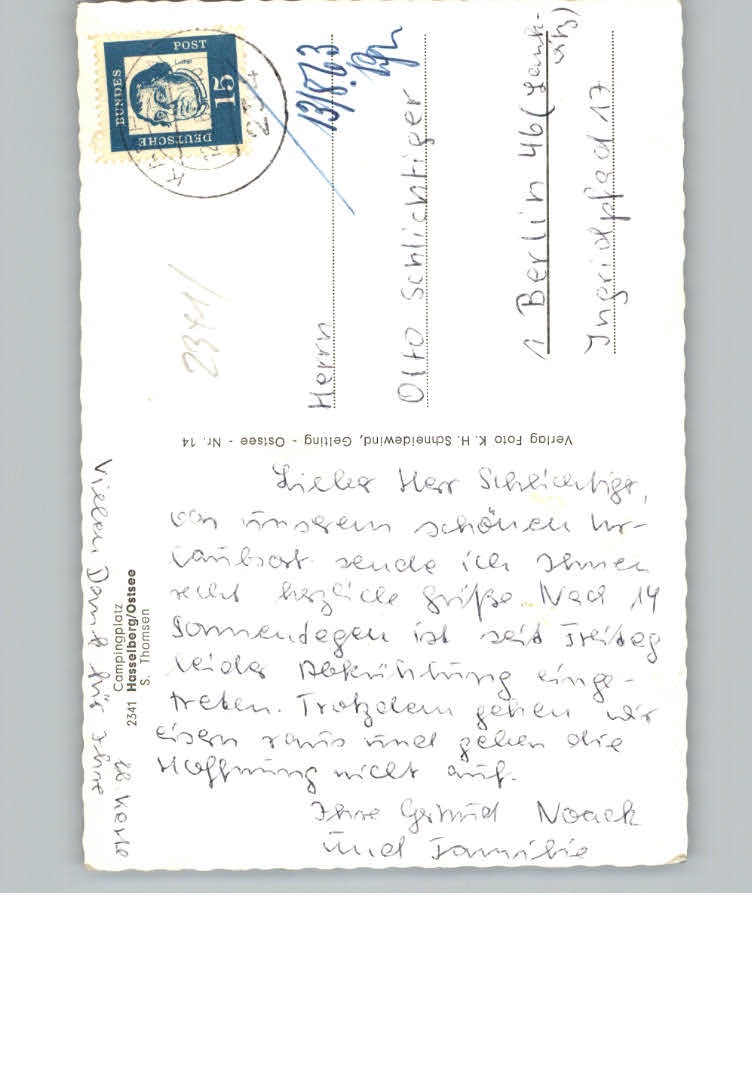 Lieber Herr Schlichtiger,
von unserem schönen Ur-
laubsort sende ich Ihnen
recht herzliche Grüße. Nach 14
Sonnentagen ist seit Freitag
leider Abkühlung einge-
treten. Trotzdem gehen wir
eisern raus und geben die
Hoffnung nicht auf.
Ihre Gertrud Noack
und Familie
Vielen Dank für Ihre
lb Karte
Campingplatz
2341 Hasselberg/Ostsee
S. Thomsen
Verlag Foto K. H. Schneidewind, Gelting - Ostsee - Nr. 14
DEUTSCHE
BUNDES
POST
15
13/8.63
2341
Herrn
Otto Schlichtiger
1 Berlin 46 (Lank-
witz)
Ingridpfad 17